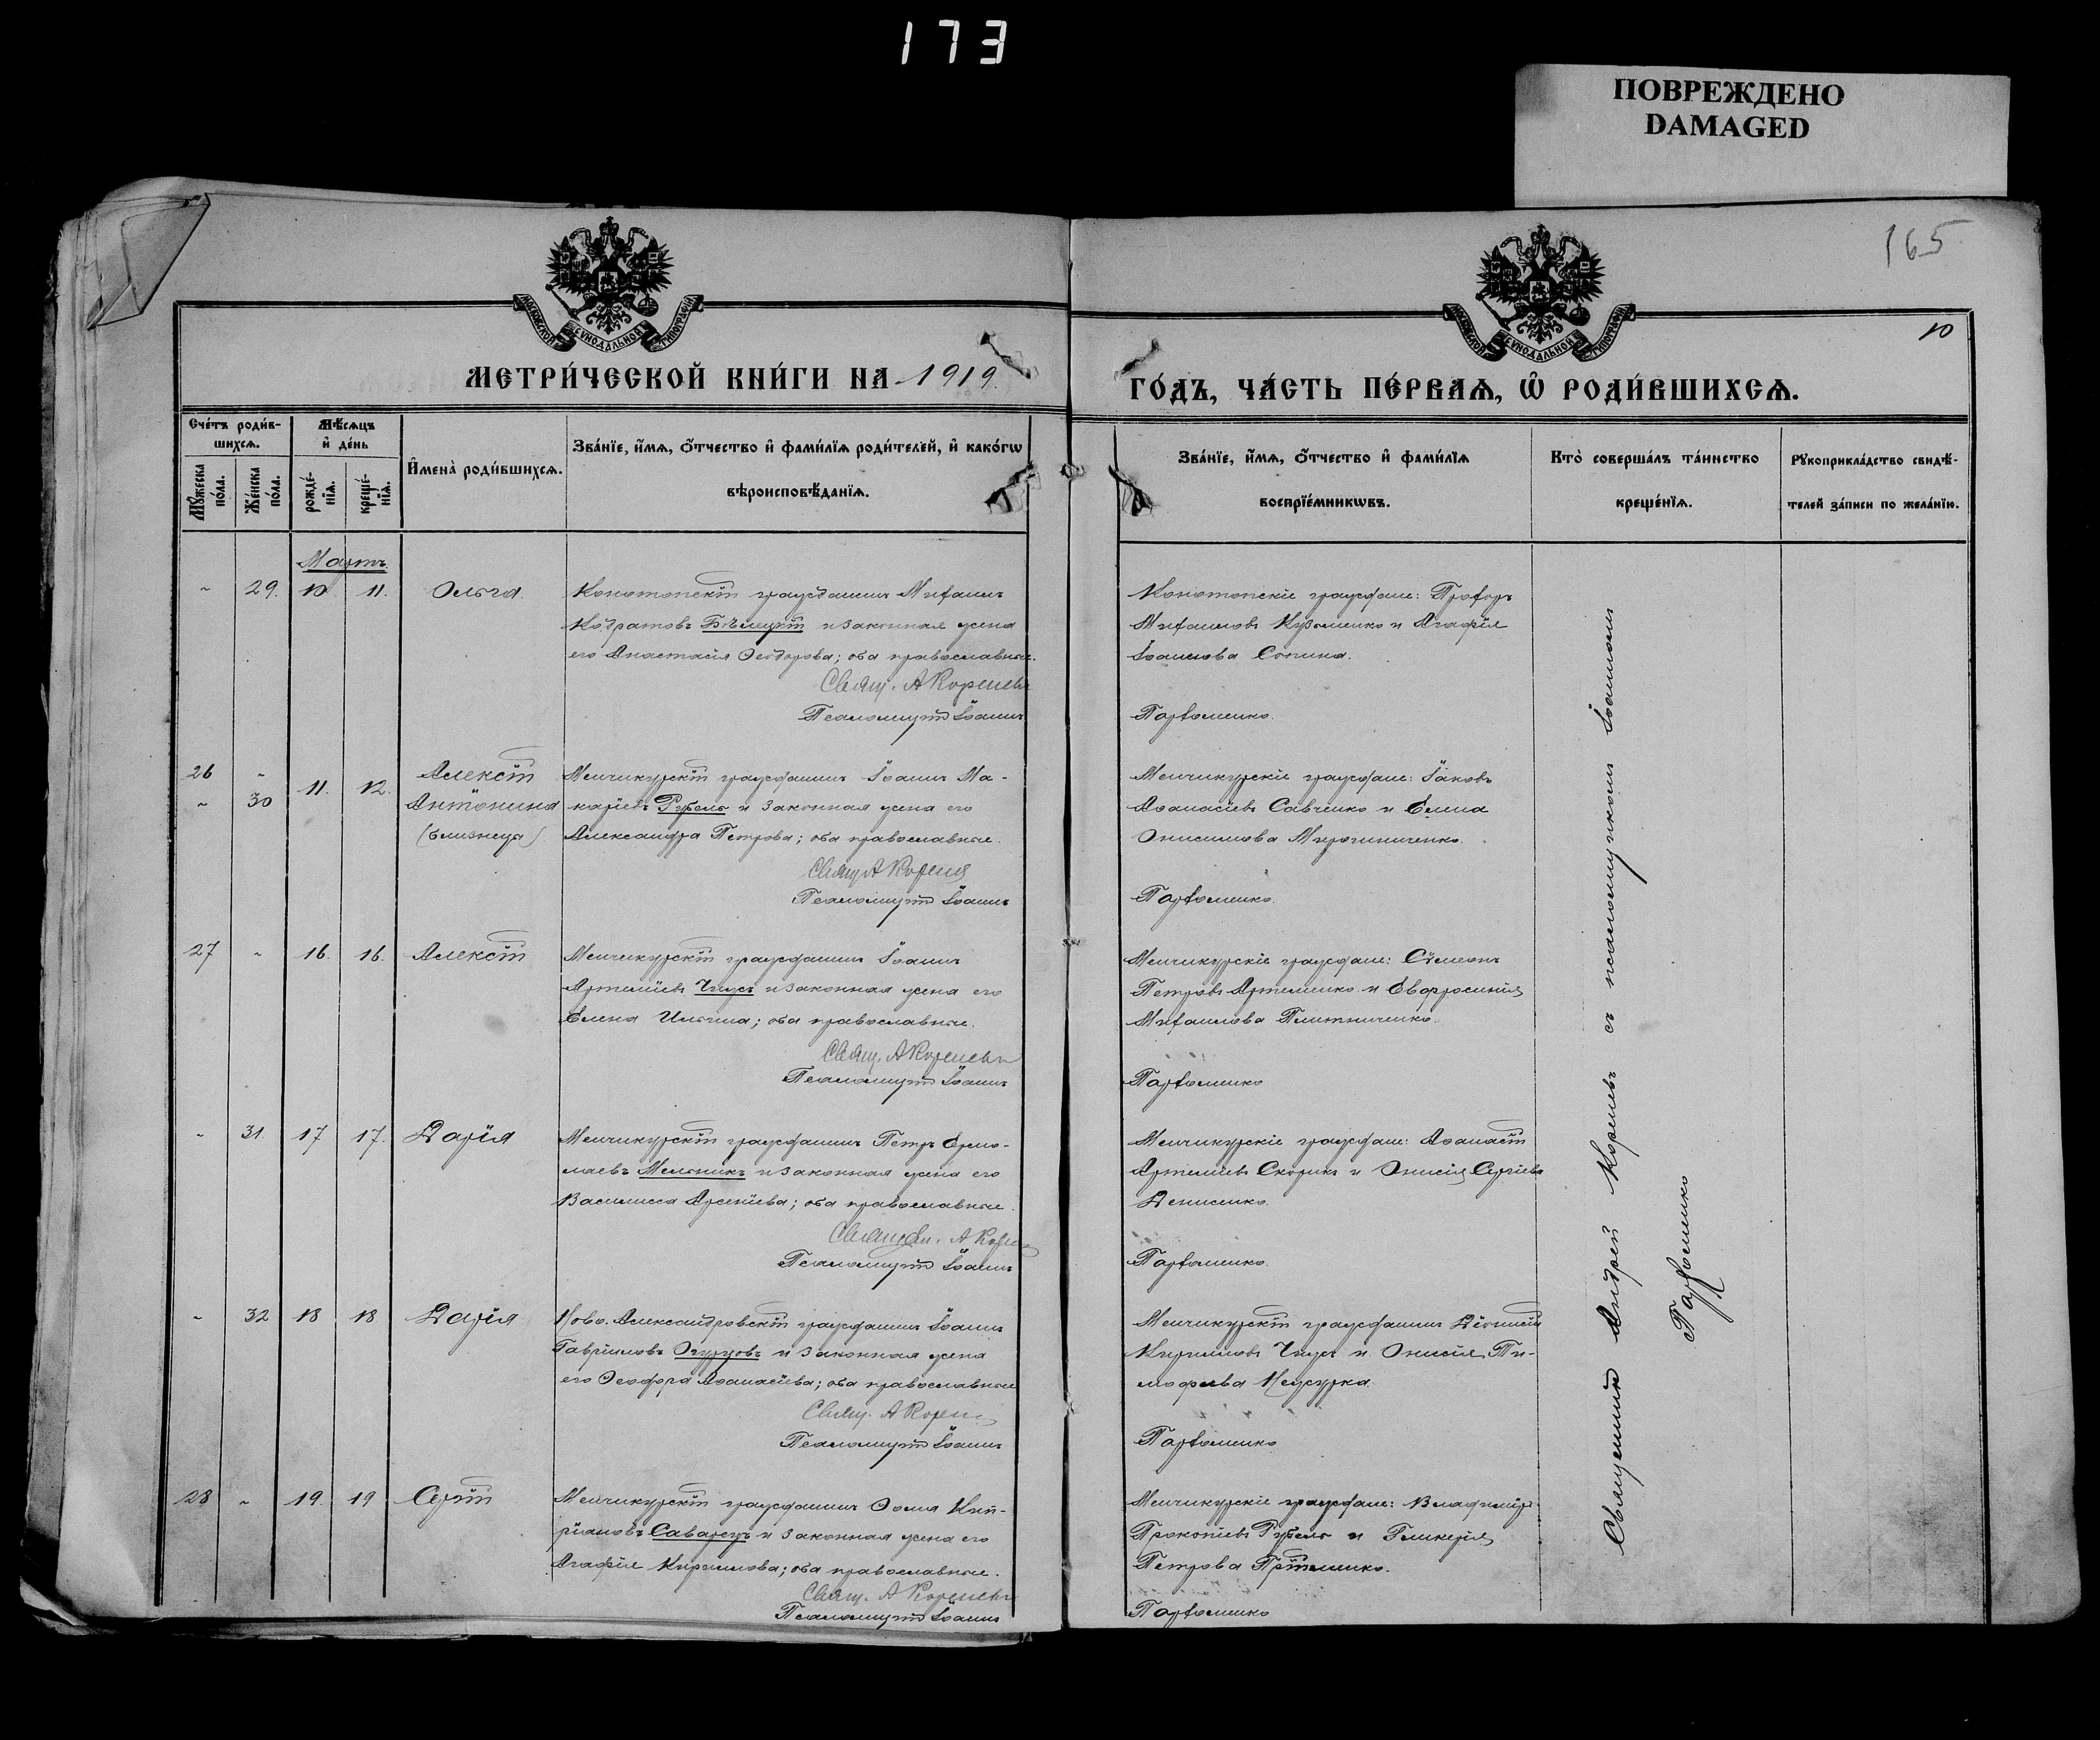 173
ПОВРЕЖДЕНО
DAMAGED
165
МОСКОВСКОЙ СѴНОДАЛЬНОЙ ТИПОГРАФІИ
МОСКОВСКОЙ СѴНОДАЛЬНОЙ ТИПОГРАФІИ
10
МЕТРИ́ЧЕСКОЙ КНИ́ГИ НА 1919.
ГО́ДЪ, ЧА́СТЬ ПЕ́РВАѦ, Ѡ҆ РОДИ́ВШИХСѦ.
Сче́тъ роди́в-
шихсѧ.
Мꙋ́жеска по́ла.
Же́нска по́ла.
Мѣ́сѧцъ
и҆ де́нь
рожде́-
нїѧ.
креще́-
нїѧ.
И҆мена̀ роди́вшихсѧ.
Зва́нїе, и҆́мѧ, ѻ҆́тчество и҆ фами́лїѧ роди́телей, и҆ како́гѡ
вѣроисповѣ́данїѧ.
Зва́нїе, и҆́мѧ, ѻ҆́тчество и҆ фами́лїѧ
воспрїе́мникѡвъ.
Кто̀ соверша́лъ та́инство
креще́нїѧ.
Рꙋкоприкла́дство свидѣ́-
телей за́писи по жела́нїю.
Мартъ
" 29. 10. 11. Ольга.
Конотопскій гражданинъ Михаилъ
Кодратовъ Бѣлецкій и законная жена
его Анастасія Ѳеодорова; оба православные.
Свящ. А Кореневъ
Псаломщикъ Іоаннъ
Конотопскіе граждане: Прохоръ
Михаиловъ Кузьменко и Агафія
Іоаннова Сопина.
Парѳоменко.
26 "
" 30
11. 12.
Алексій
Антонина
(близнеца)
Менчикурскій гражданинъ Іоаннъ Ма-
каріевъ Рубель и законная жена его
Александра Петрова; оба православные.
Свящ А Кореня
Псаломщикъ Іоаннъ
Менчикурскіе граждане: Іаковъ
Аѳанасіевъ Савченко и Елена
Онисимова Мирошниченко.
Парѳоменко.
27 " 16. 16. Алексій
Менчикурскій гражданинъ Іоаннъ
Артеміевъ Чиусъ и законная жена его
Елена Ильина; оба православные.
Свящ. А Кореневъ
Псаломщикъ Іоаннъ
Менчикурскіе граждане: Сѵмеонъ
Петровъ Артеменко и Евфросинія
Михаилова Плитниченко.
Парѳоменко
" 31. 17 17. Дарія
Менчикурскій гражданинъ Петръ Ермо-
лаевъ Мельникъ и законная жена его
Василисса Арсеніева; оба православные.
Священ. А Корен
Псаломщикъ Іоаннъ
Менчикурскіе граждане: Аѳанасій
Артеміевъ Скорикъ и Онисія Сергіева
Денисенко.
Парѳоменко.
" 32 18 18. Дарія
Ново-Александровскій гражданинъ Іоаннъ
Гавріиловъ Огурцовъ и законная жена
его Ѳеодора Аѳанасіева; оба православные
Свящ. А Корень
Псаломщикъ Іоаннъ
Менчикурскій гражданинъ Діонисій
Кирилловъ Чиусъ и Онисія Ти-
моѳеева
Парѳоменко
28 " 19. 19 Сергій
Менчикурскій гражданинъ Ѳома Кип-
ріановъ Саварецъ и законная жена его
Агафія Кириллова; оба православные.
Свящ. А Кореневъ
Псаломщикъ Іоаннъ
Менчикурскіе граждане: Владиміръ
Прокопіевъ Рубель и Гликерія
Петрова
Парѳоменко
Священникъ Андрей Кореневъ съ псаломщикомъ Іоанномъ
Парѳоменко